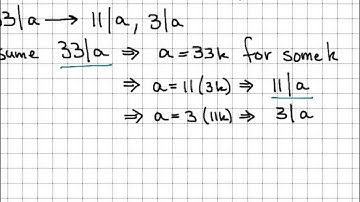 33|a → 11|a, 3|a
sume 33|a ⇒ a=33k for some k
⇒ a=11(3k) ⇒ 11|a
⇒ a=3(11k) ⇒ 3|a